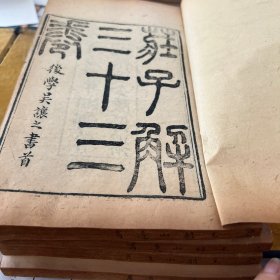 莊子解
三十三
卷
後學吳讓之書首